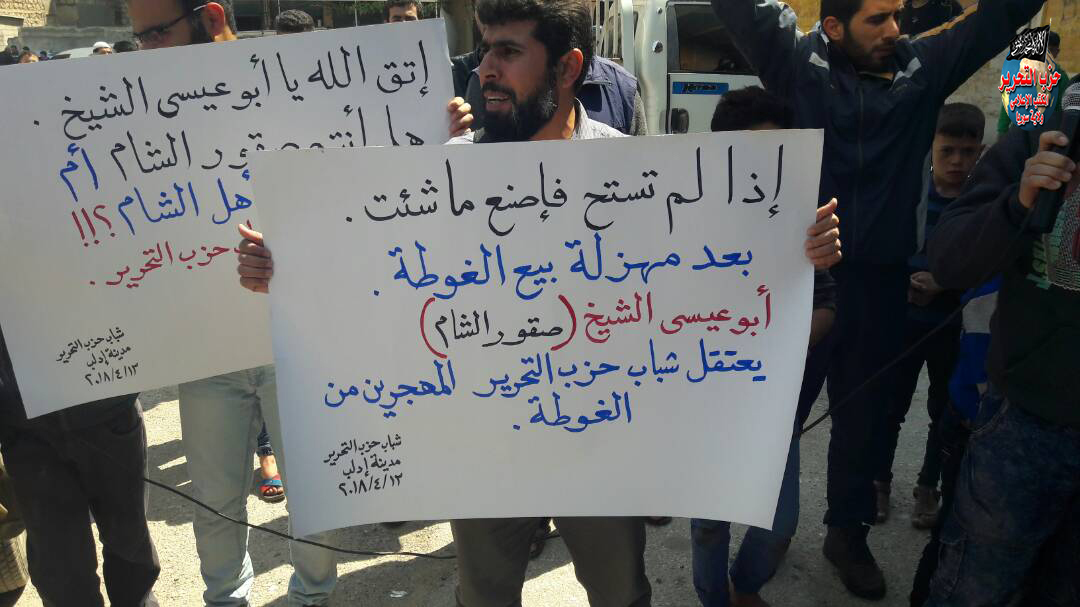 إذا لم تستح فإصنع ما شئت .
بعد مهزلة بيع الغوطة .
أبو عيسى الشيخ (صقور الشام)
يعتقل شباب حزب التحرير المهجرين من
الغوطة .
شباب حزب التحرير
مدينة إدلب
٢٠١٨/٤/١٣
إتق الله يا أبو عيسى الشيخ .
هل أنتم صقور الشام أم
هل الشام ؟!!!
حزب التحرير .
شباب حزب التحرير
مدينة إدلب
٢٠١٨/٤/١٣
حزب التحرير
المكتب الإعلامي
ولاية سوريا